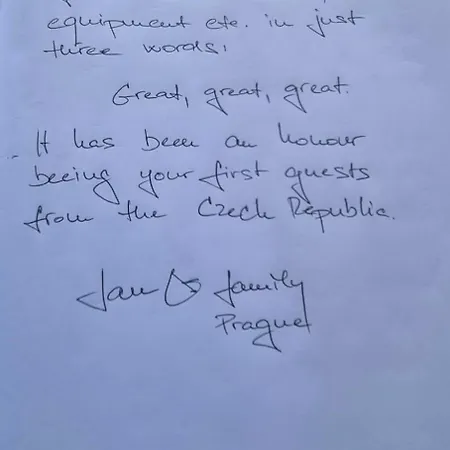 equipment etc. in just
three words:
Great, great, great.
It has been an honour
beeing your first guests
from the Czech Republic.
Jan & family
Prague